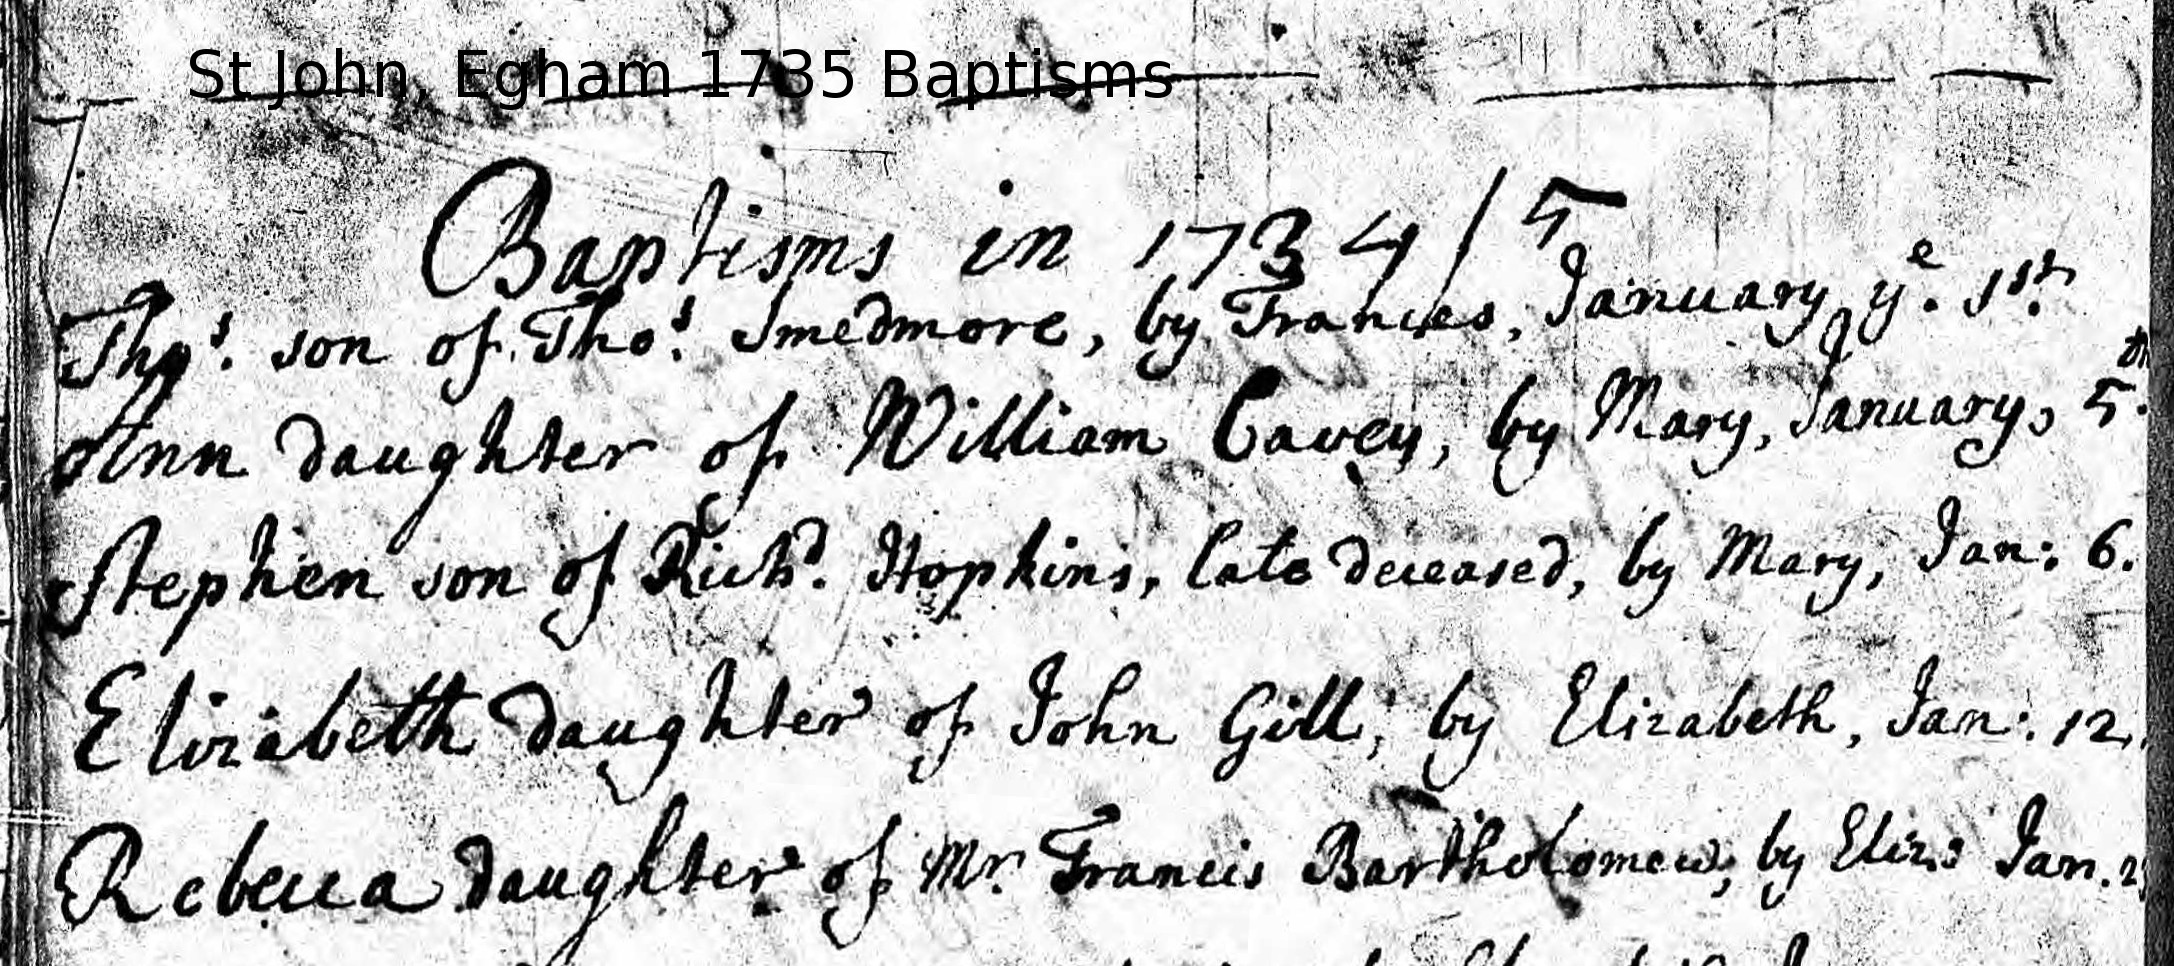 St John, Egham 1735 Baptisms
Baptisms in 1734/5
Thos. son of Thos. Smedmore, by Frances, January ye. 1st.
Ann daughter of William Cavey, by Mary, January, 5th.
Stephen son of Richd. Hopkins, late deceased, by Mary, Jan: 6.
Elizabeth daughter of John Gill, by Elizabeth, Jan: 12.
Rebecca daughter of Mr. Francis Bartholomew, by Eliz: Jan.